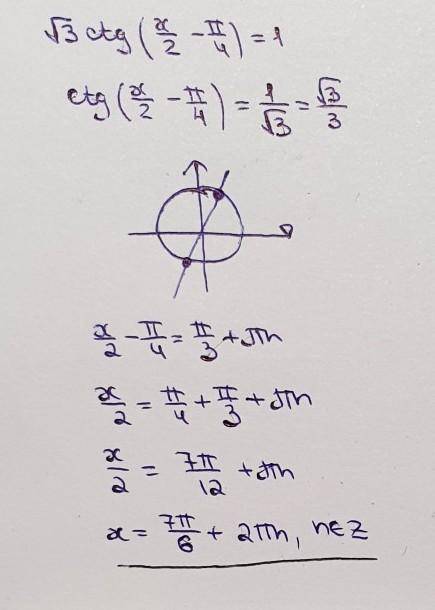 √3 ctg(x/2 - π/4) = 1
ctg(x/2 - π/4) = 1/√3 = √3/3
x/2 - π/4 = π/3 + πn
x/2 = π/4 + π/3 + πn
x/2 = 7π/12 + πn
x = 7π/6 + 2πn, n∈Z